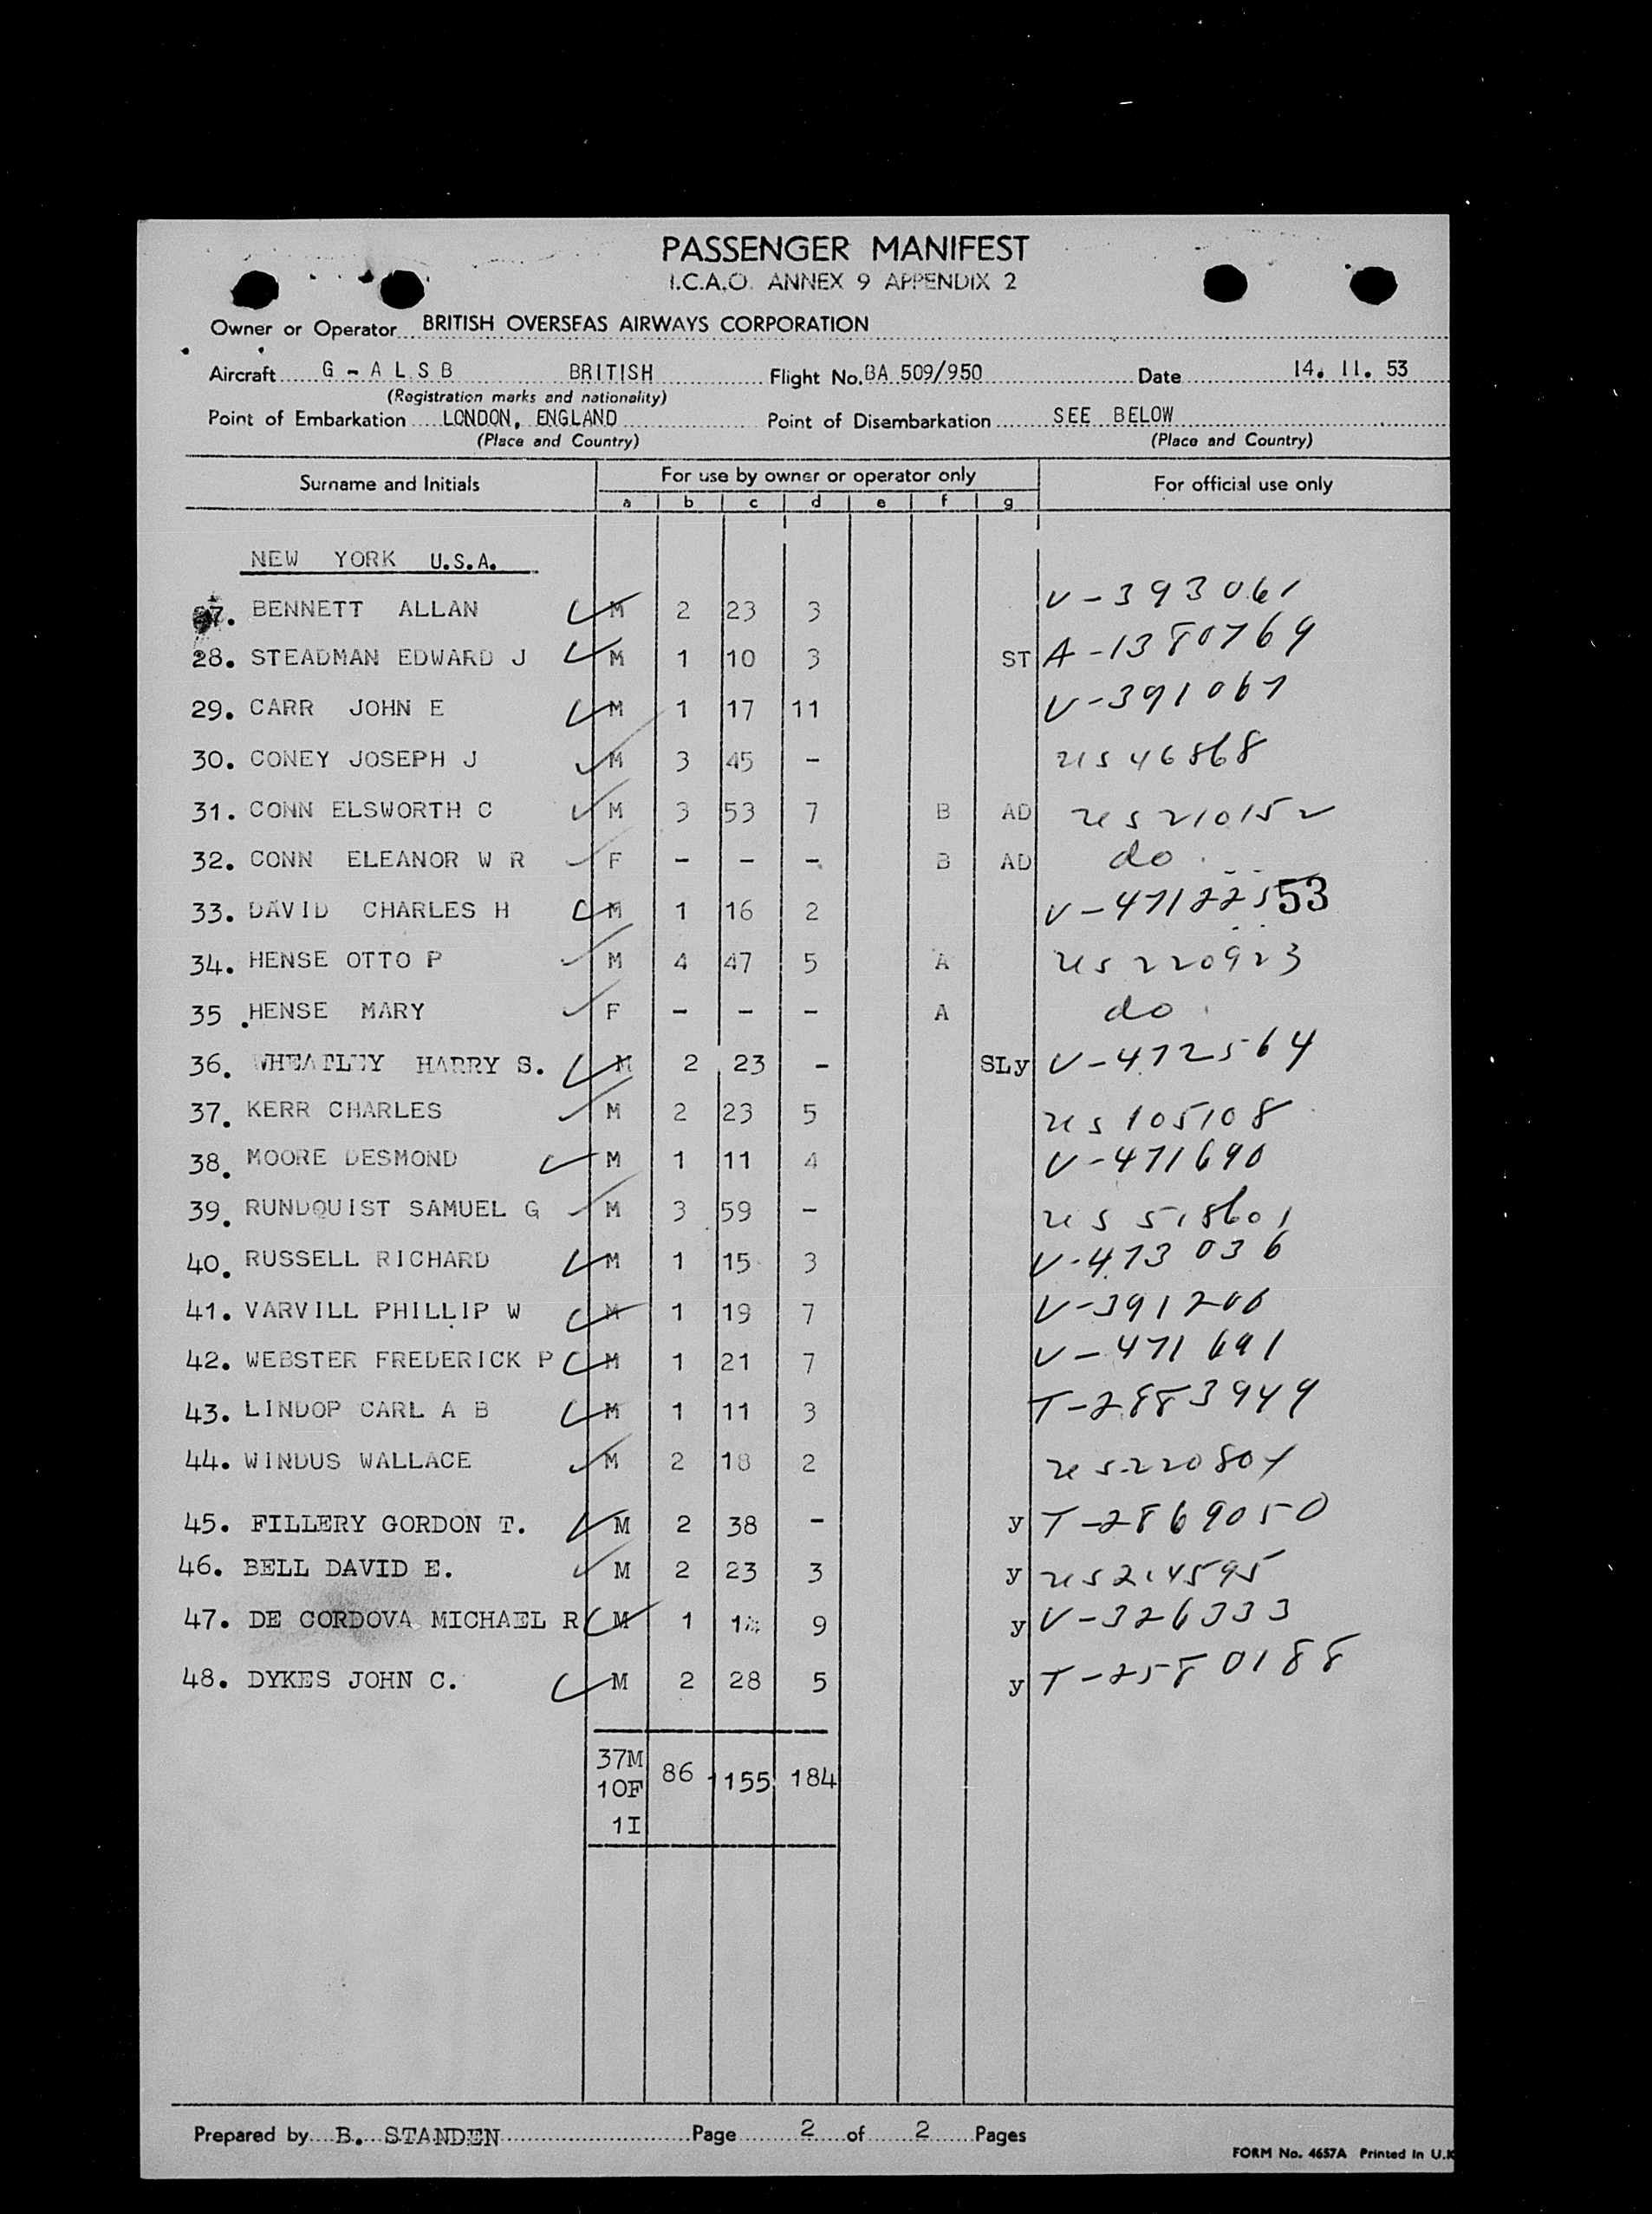 PASSENGER MANIFEST
I.C.A.O. ANNEX 9 APPENDIX 2
Owner or Operator BRITISH OVERSEAS AIRWAYS CORPORATION
Aircraft G - A L S B BRITISH Flight No. BA 509/950 Date 14. 11. 53
(Registration marks and nationality)
Point of Embarkation LONDON, ENGLAND Point of Disembarkation SEE BELOW
(Place and Country) (Place and Country)
Surname and Initials For use by owner or operator only For official use only
a b c d e f g
NEW YORK U.S.A.
27. BENNETT ALLAN M 2 23 3 V-393061
28. STEADMAN EDWARD J M 1 10 3 ST A-1380769
29. CARR JOHN E M 1 17 11 V-391067
30. CONEY JOSEPH J M 3 45 - us 46868
31. CONN ELSWORTH C M 3 53 7 B AD us 210152
32. CONN ELEANOR W R F - - - B AD do.
33. DAVID CHARLES H M 1 16 2 V-471225 53
34. HENSE OTTO P M 4 47 5 A us 220923
35. HENSE MARY F - - - A do.
36. WHEATLEY HARRY S. M 2 23 - SLy V-472564
37. KERR CHARLES M 2 23 5 us 105108
38. MOORE DESMOND M 1 11 4 V-471690
39. RUNDQUIST SAMUEL G M 3 59 - us 518601
40. RUSSELL RICHARD M 1 15 3 V-473036
41. VARVILL PHILLIP W M 1 19 7 V-391200
42. WEBSTER FREDERICK P M 1 21 7 V-471691
43. LINDOP CARL A B M 1 11 3 T-2883949
44. WINDUS WALLACE M 2 18 2 us 220804
45. FILLERY GORDON T. M 2 38 - y T-2869050
46. BELL DAVID E. M 2 23 3 y us 214595
47. DE CORDOVA MICHAEL R M 1 9 y V-326333
48. DYKES JOHN C. M 2 28 5 y T-2580188
37M 86 1155 184
10F
1I
Prepared by B. STANDEN Page 2 of 2 Pages
FORM No. 4657A Printed in U.K